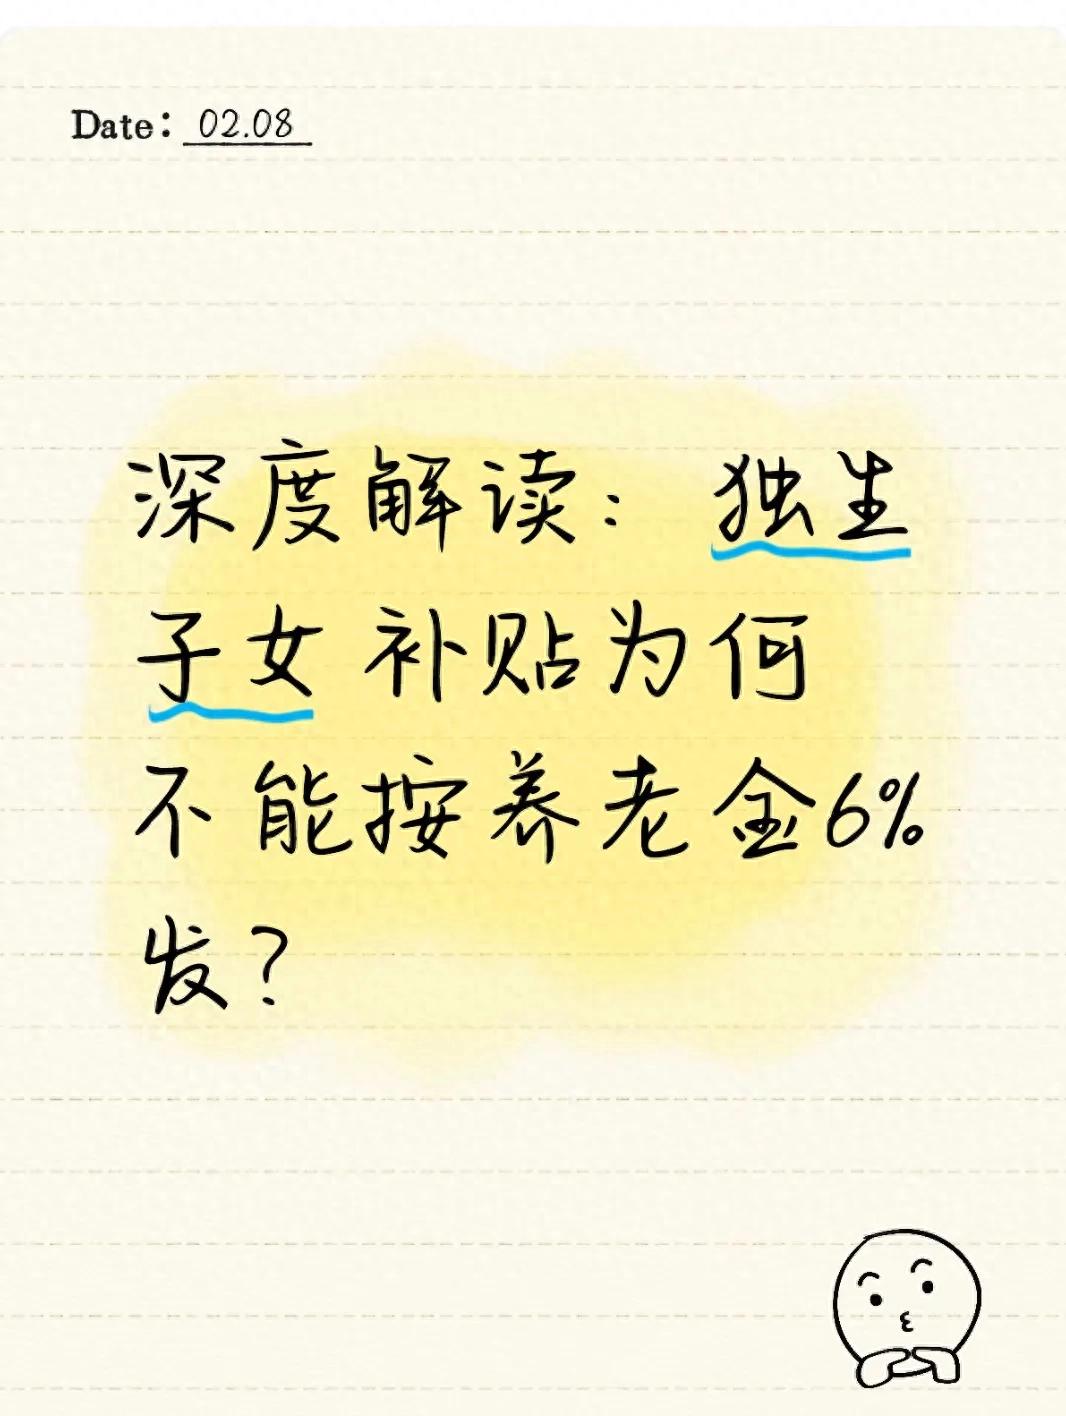 Date: 02.08
深度解读：独生
子女补贴为何
不能按养老金6%
发？